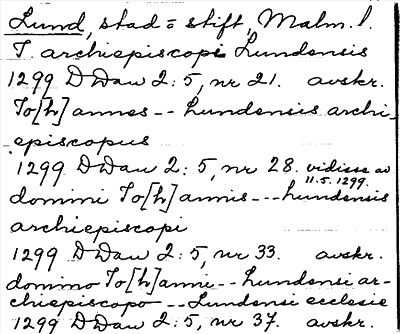 Lund, stad = stift, Malm. l.
J. archiepiscopi Lundensis
1299 DDan 2:5, nr 21. avskr.
Jo[h]annes -- Lundensis archi-
episcopus
1299 DDan 2:5, nr 28. vidisse av
11.5.1299.
domini Jo[h]annis --- Lundensis
archiepiscopi
1299 DDan 2:5, nr 33. avskr.
domino Jo[h]anni -- Lundensi ar-
chiepiscopo -- Lundensi ecclesie
1299 DDan 2:5, nr 37. avskr.